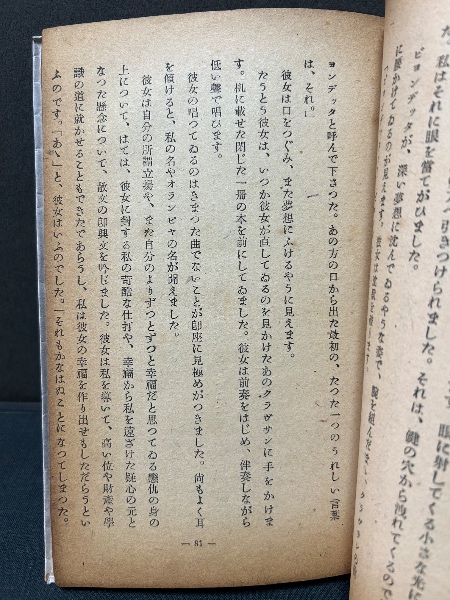 な、私はそれに眼を當てがひました。
ビヨンデッタが、深い夢想に沈んでゐるやうな姿で、腕を組んだまゝ
に腰かけてゐるのが見えます。彼女は
引きつけられました。それは、鍵の穴から洩れてくるので
眼に射してくる小さな光に
ヨンデッタと呼んで下さつた。あの方の口から出た最初の、たつた一つのうれしい言葉
は、それ。」
彼女は口をつぐみ、また夢想にふけるやうに見えます。
たうとう彼女は、いつか彼女が直してゐるのを見かけたあのクラヴサンに手をかけま
す。机に載せた閉じた一冊の本を前にしてゐました。彼女は前奏をはじめ、伴奏しながら
低い聲で唱ひます。
彼女の唱つてゐるのはきまつた曲でないことが卽座に見極めがつきました。尙もよく耳
を傾けると、私の名やオランピヤの名が聽えました。
彼女は自分の所謂立場や、また自分のよりずつとずつと幸福だと思つてゐる戀仇の身の
上について、はては、彼女に對する私の苛酷な仕打や、幸福から私を遠ざけた疑心の元と
なつた懸念について、散文の卽興文を吟じました。彼女は私を導いて、高い位や財產や學
識の道に就かせることもできたであらうし、私は彼女の幸福を作り出せもしただらうとい
ふのです。「あゝ」と、彼女はいふのでした。「それもかなはぬことになつてしまつた。
— 61 —